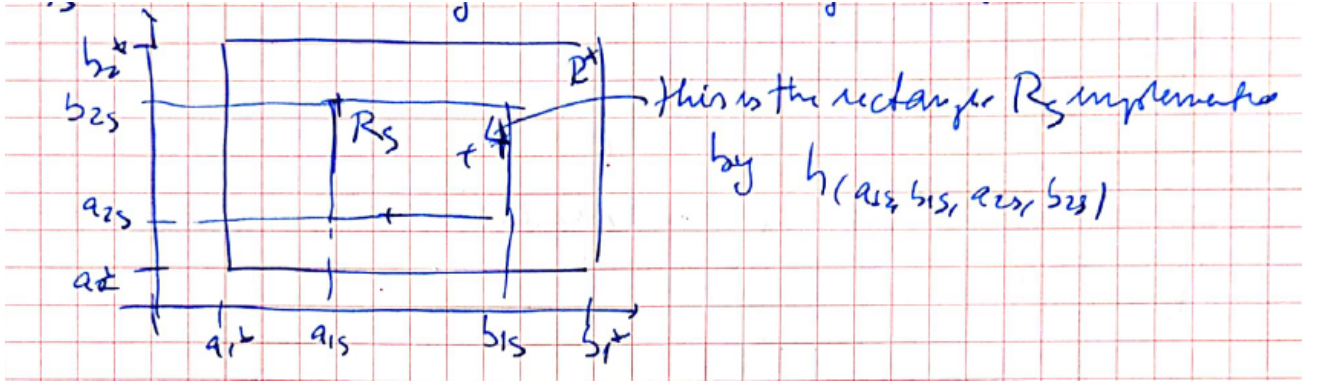 b₂*
R*
b₂ₛ
Rₛ
this is the rectangle Rₛ implemented
by h(a₁ₛ, b₁ₛ, a₂ₛ, b₂ₛ)
a₂ₛ
a₂*
a₁*
a₁ₛ
b₁ₛ
b₁*